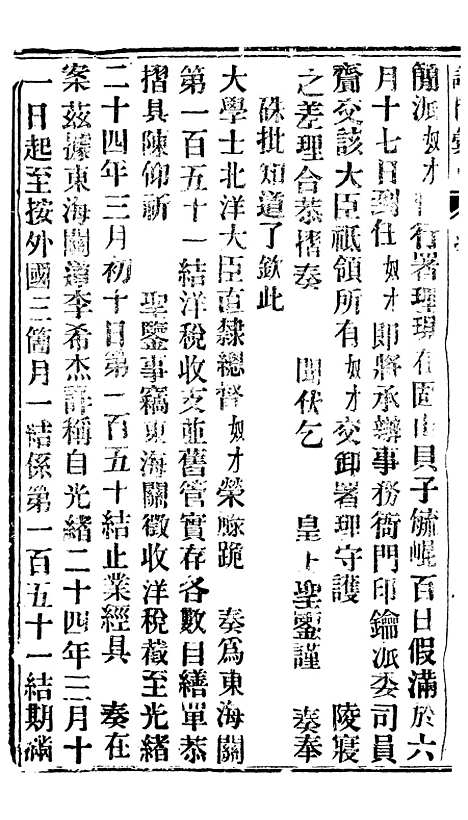 簡派奴才行署理現有固山貝子毓崐百日假滿於六
月十七日到任奴才即將承辦事務衙門印鑰派委司員
齎交該大臣祇領所有奴才交卸署理守護 陵寢
之差理合恭摺奏 聞伏乞 皇上聖鑒謹 奏奉
硃批知道了欽此
大學士北洋大臣直隸總督奴才榮祿跪 奏為東海關
第一百五十一結洋稅收支並舊管實存各數目繕單恭
摺具陳仰祈 聖鑒事竊東海關徵收洋稅截至光緒
二十四年三月初十日第一百五十結止業經具 奏在
案茲據東海關道李希杰詳稱自光緒二十四年三月十
一日起至按外國三箇月一結係第一百五十一結期滿